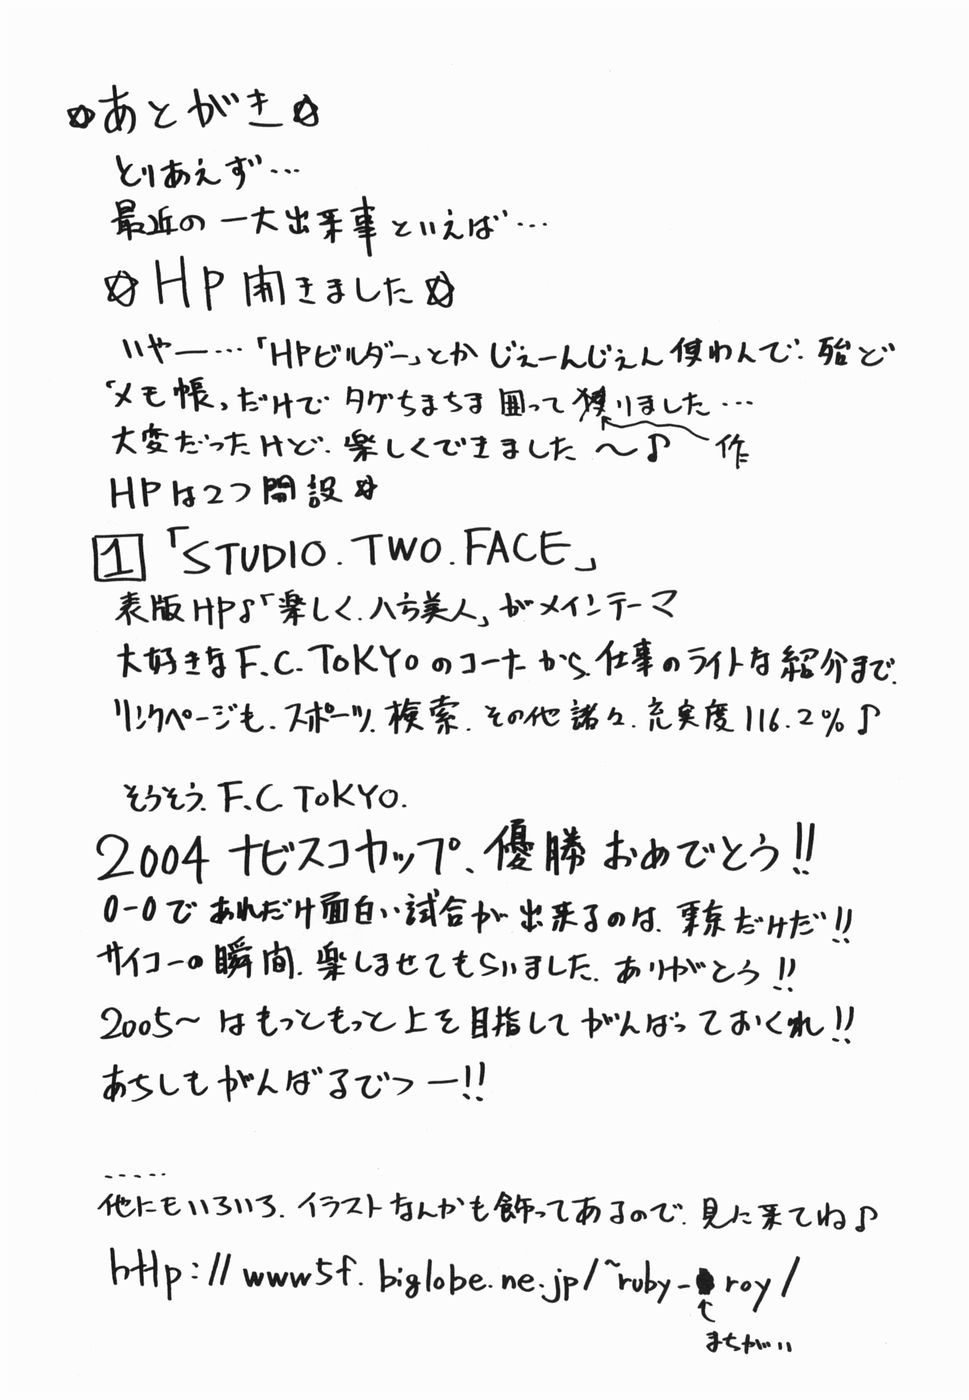 ☆あとがき☆
とりあえず…
最近の一大出来事といえば…
☆HP開きました☆
いやー…「HPビルダー」とかじぇーんじぇん使わんで、殆ど
「メモ帳」だけでタグちまちま囲ってりました…
作
大変だったけど、楽しくできました～♪
HPは2つ開設☆
1「STUDIO.TWO.FACE」
表版HP♪「楽しく、八方美人」がメインテーマ
大好きなF.C.TOKYOのコーナーから、仕事のライトな紹介まで、
リンクページも、スポーツ、検索、その他諸々、充実度116.2%♪
そうそう、F.C TOKYO.
2004 ナビスコカップ、優勝おめでとう!!
0-0であれだけ面白い試合が出来るのは、東京だけだ!!
サイコーの瞬間、楽しませてもらいました、ありがとう!!
2005～はもっともっと上を目指してがんばっておくれ!!
あちしもがんばるでつー!!
.....
他にもいろいろ、イラストなんかも飾ってあるので、見に来てね♪
http://www5f.biglobe.ne.jp/~ruby-roy/
まちがい